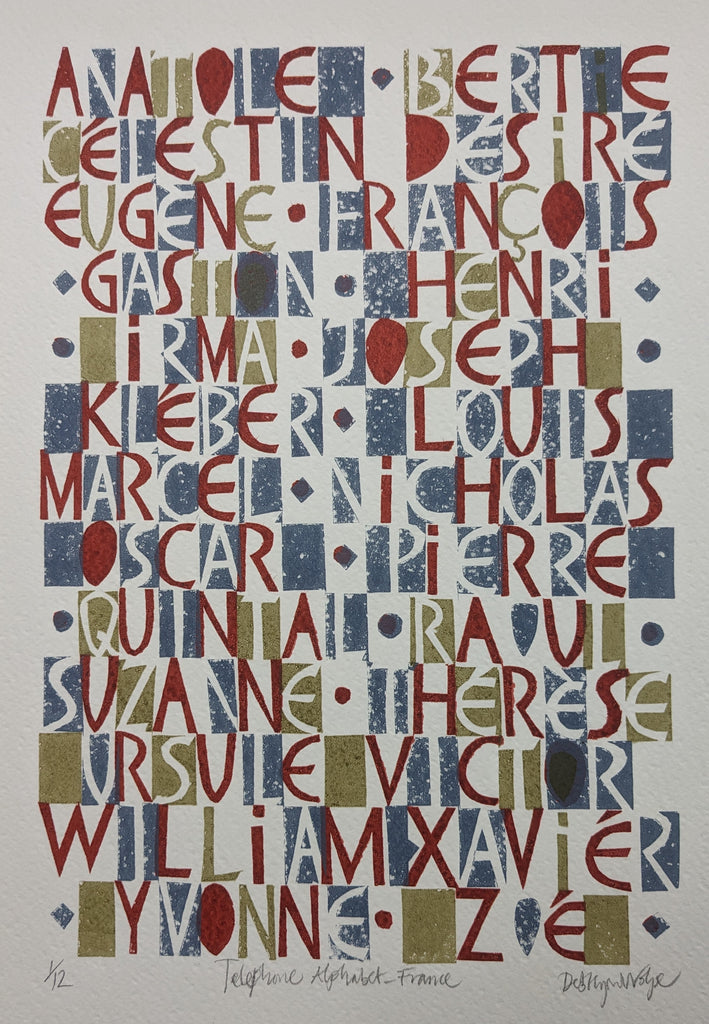 ANATOLE · BERTIE
CÉLESTIN DÉSIRÉ
EUGÈNE · FRANÇOIS
GASTON · HENRI
IRMA · JOSEPH
KLÉBER · LOUIS
MARCEL · NICHOLAS
OSCAR · PIERRE
QUINTAL · RAOUL
SUZANNE · THÉRÈSE
URSULE VICTOR
WILLIAM XAVIÉR
YVONNE · ZOÉ
1/12 Telephone Alphabet - France